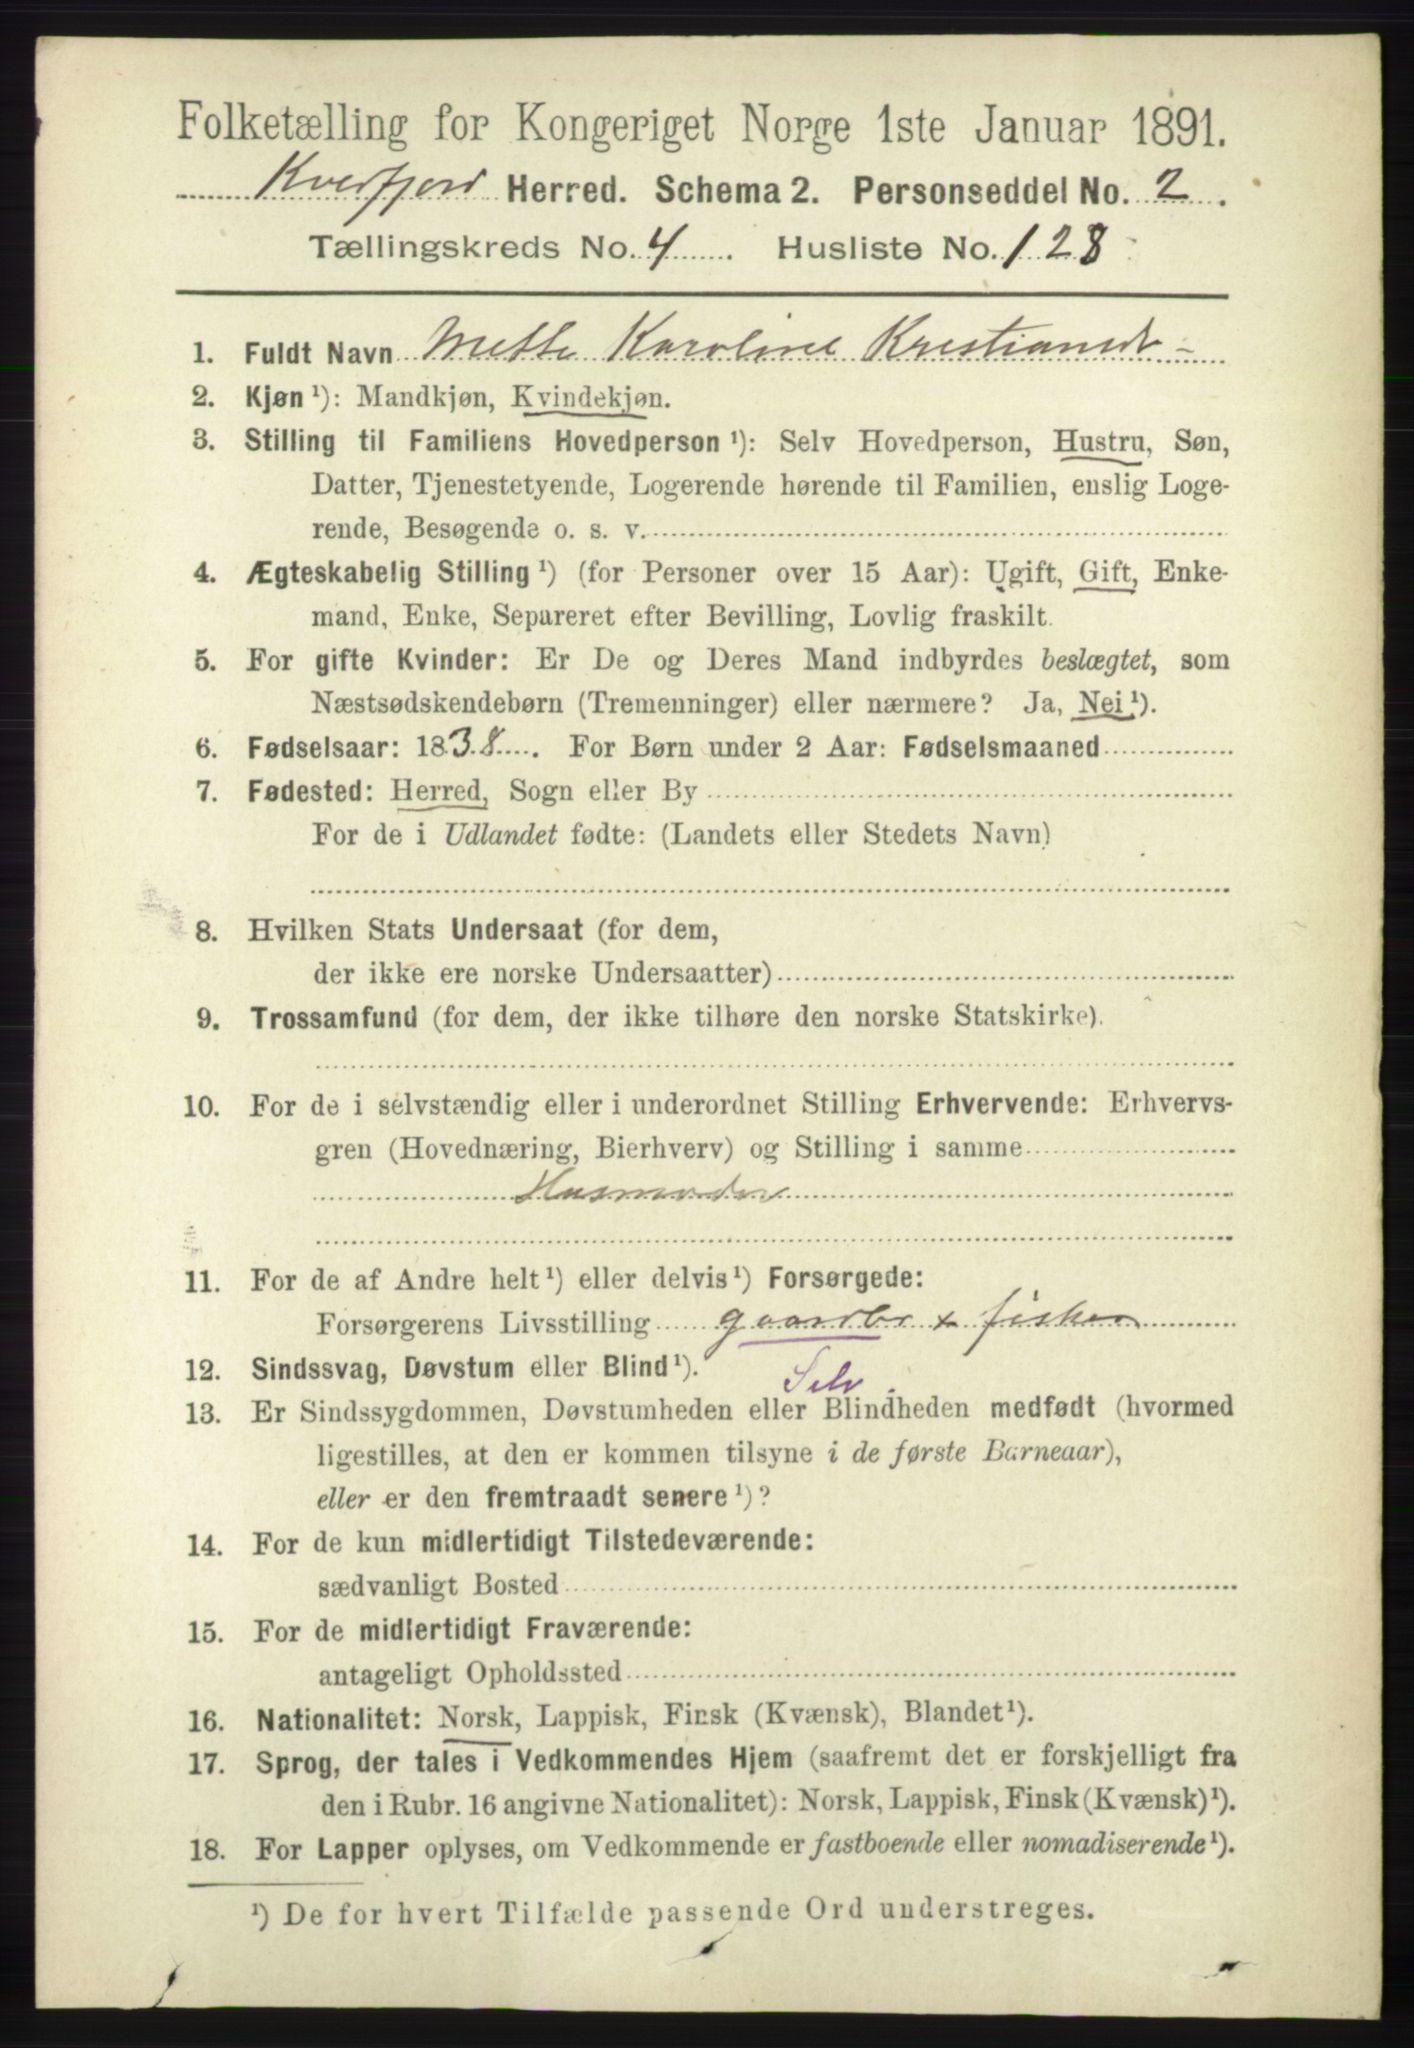 Folketælling for Kongeriget Norge 1ste Januar 1891.
Kvæfjord Herred. Schema 2. Personseddel No. 2.
Tællingskreds No. 4. Husliste No. 128
1. Fuldt Navn Mette Karoline Kristiansdt
2. Kjøn ¹): Mandkjøn, Kvindekjøn.
3. Stilling til Familiens Hovedperson ¹): Selv Hovedperson, Hustru, Søn,
Datter, Tjenestetyende, Logerende hørende til Familien, enslig Loge-
rende, Besøgende o. s. v.
4. Ægteskabelig Stilling ¹) (for Personer over 15 Aar): Ugift, Gift, Enke-
mand, Enke, Separeret efter Bevilling, Lovlig fraskilt.
5. For gifte Kvinder: Er De og Deres Mand indbyrdes beslægtet, som
Næstsødskendebørn (Tremenninger) eller nærmere? Ja, Nei ¹).
6. Fødselsaar: 1838. For Børn under 2 Aar: Fødselsmaaned
7. Fødested: Herred, Sogn eller By
For de i Udlandet fødte: (Landets eller Stedets Navn)
8. Hvilken Stats Undersaat (for dem,
der ikke ere norske Undersaatter)
9. Trossamfund (for dem, der ikke tilhøre den norske Statskirke).
10. For de i selvstændig eller i underordnet Stilling Erhvervende: Erhvervs-
gren (Hovednæring, Bierhverv) og Stilling i samme
Husmoder
11. For de af Andre helt ¹) eller delvis ¹) Forsørgede:
Forsørgerens Livsstilling gaardbr x fisker
12. Sindssvag, Døvstum eller Blind ¹). Selv.
13. Er Sindssygdommen, Døvstumheden eller Blindheden medfødt (hvormed
ligestilles, at den er kommen tilsyne i de første Barneaar),
eller er den fremtraadt senere ¹)?
14. For de kun midlertidigt Tilstedeværende:
sædvanligt Bosted
15. For de midlertidigt Fraværende:
antageligt Opholdssted
16. Nationalitet: Norsk, Lappisk, Finsk (Kvænsk), Blandet ¹).
17. Sprog, der tales i Vedkommendes Hjem (saafremt det er forskjelligt fra
den i Rubr. 16 angivne Nationalitet): Norsk, Lappisk, Finsk (Kvænsk) ¹).
18. For Lapper oplyses, om Vedkommende er fastboende eller nomadiserende ¹).
¹) De for hvert Tilfælde passende Ord understreges.